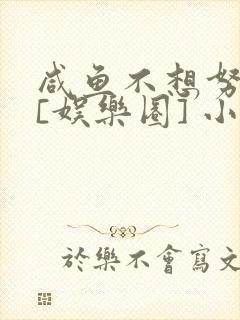 咸鱼不想努
[娱樂圈] 小
於樂不會寫文